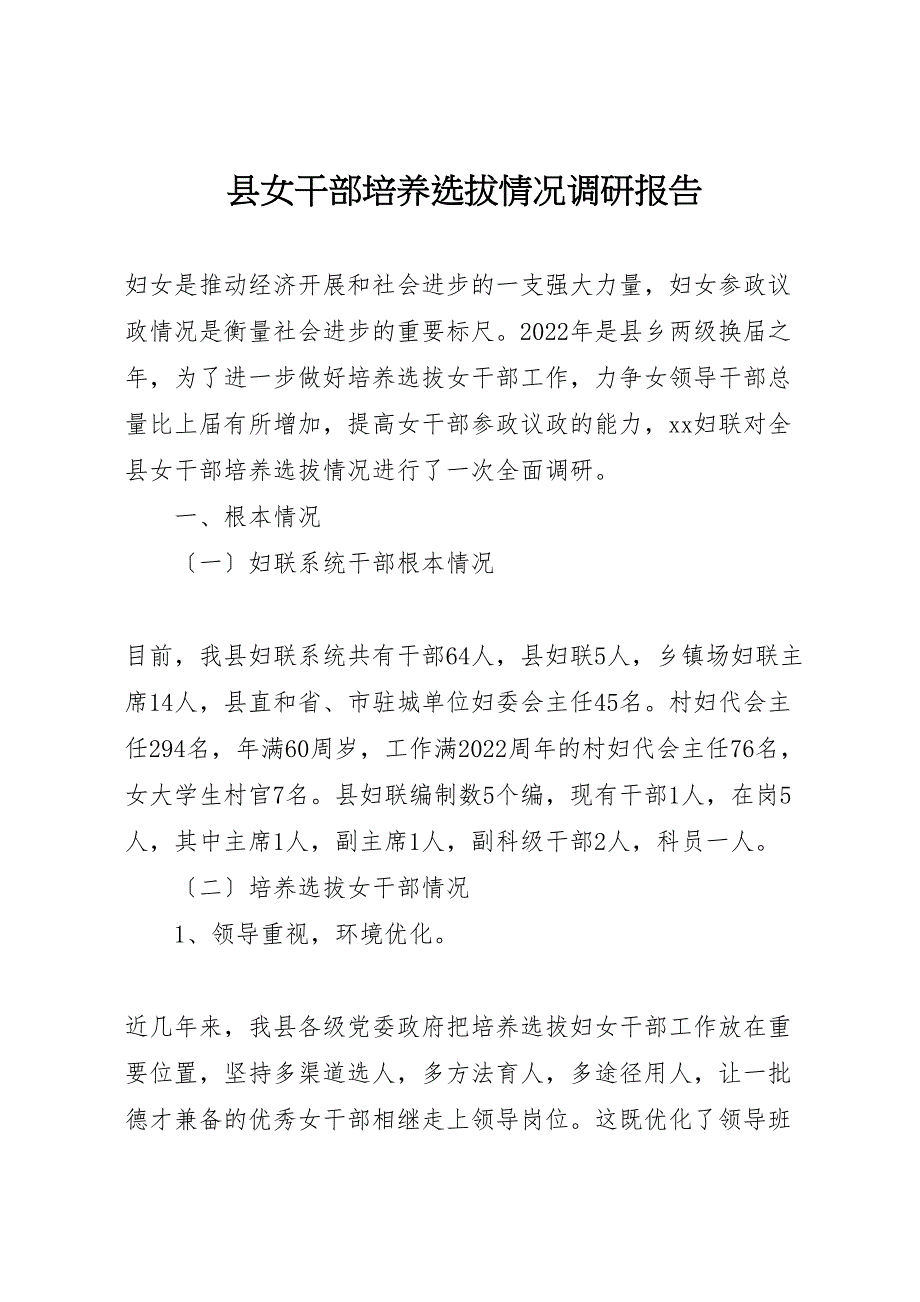 县女干部培养选拔情况调研报告
妇女是推动经济开展和社会进步的一支强大力量，妇女参政议
政情况是衡量社会进步的重要标尺。2022年是县乡两级换届之
年，为了进一步做好培养选拔女干部工作，力争女领导干部总
量比上届有所增加，提高女干部参政议政的能力，xx妇联对全
县女干部培养选拔情况进行了一次全面调研。
一、根本情况
〔一〕妇联系统干部根本情况
目前，我县妇联系统共有干部64人，县妇联5人，乡镇场妇联主
席14人，县直和省、市驻城单位妇委会主任45名。村妇代会主
任294名，年满60周岁，工作满2022周年的村妇代会主任76名，
女大学生村官7名。县妇联编制数5个编，现有干部1人，在岗5
人，其中主席1人，副主席1人，副科级干部2人，科员一人。
〔二〕培养选拔女干部情况
1、领导重视，环境优化。
近几年来，我县各级党委政府把培养选拔妇女干部工作放在重
要位置，坚持多渠道选人，多方法育人，多途径用人，让一批
德才兼备的优秀女干部相继走上领导岗位。这既优化了领导班